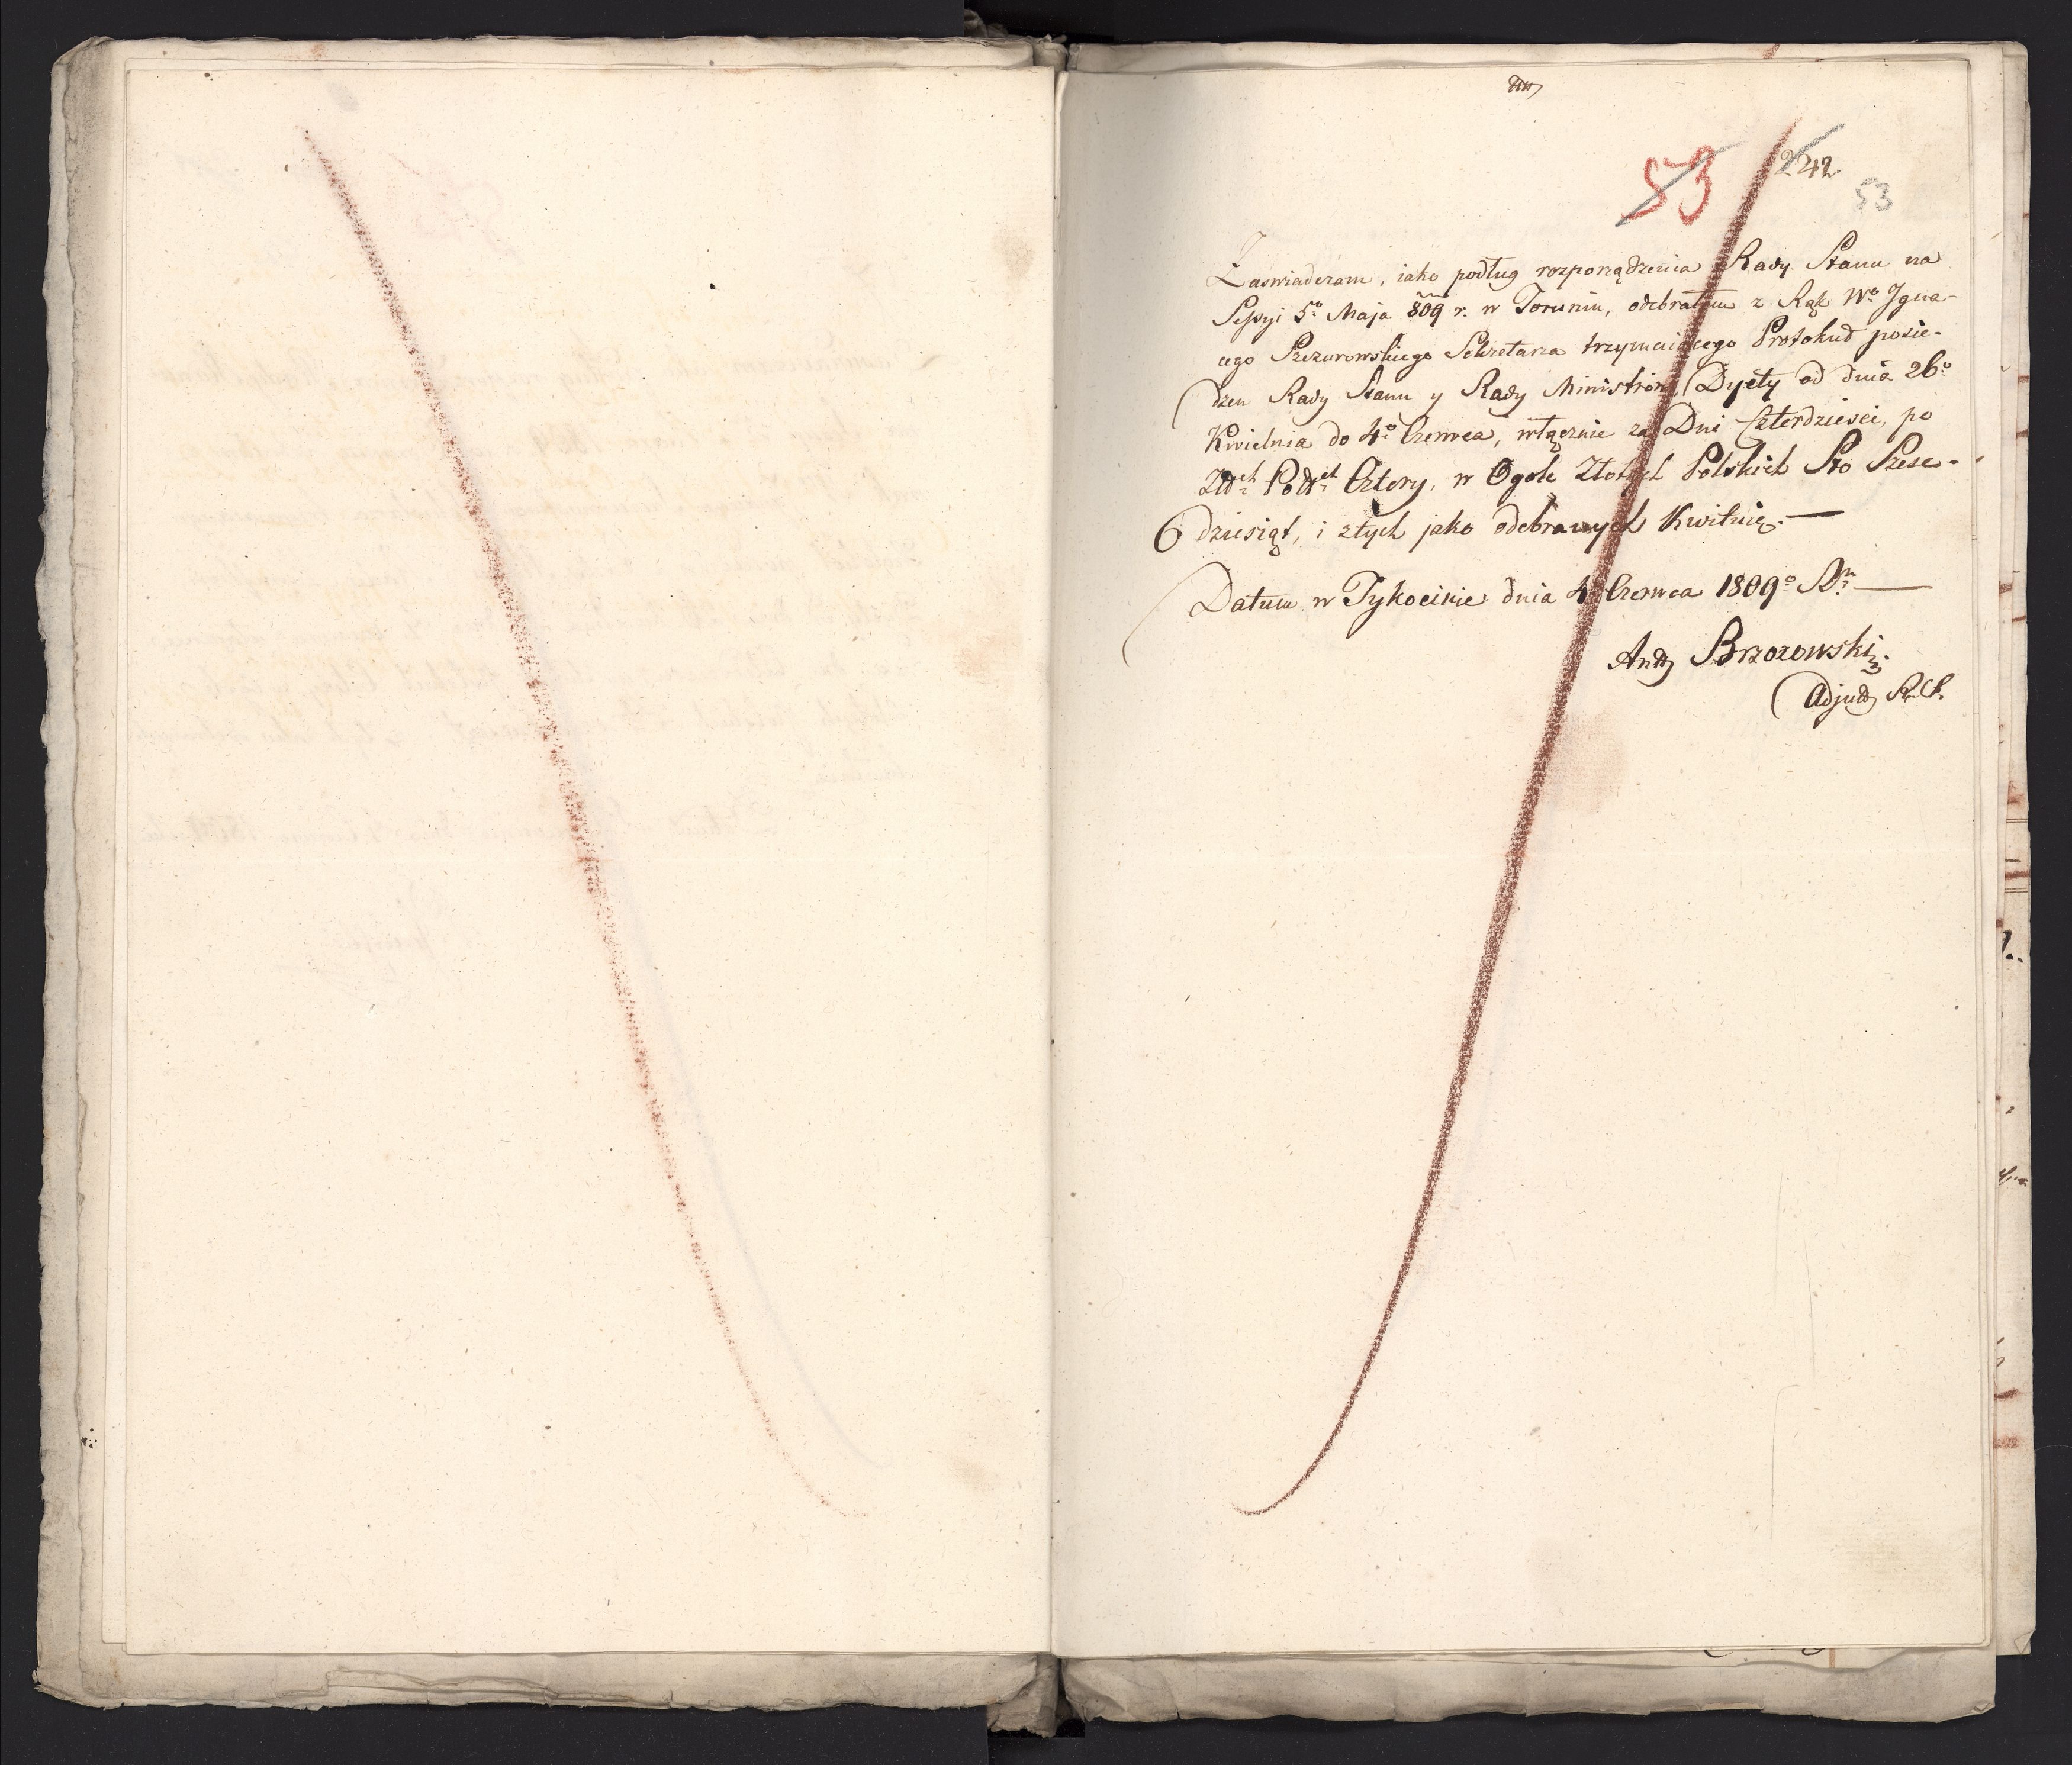 53
242.
53
Zaswiadczam, iako podług rozporządzenia Rady Stanu na
Sessyi 5º Maja 809 r. w Toruniu, odebrałem z Rąk Wº Jgna-
cego Szczurowskiego Sekretarza trzymaiącego Protokuł posie-
dzen Rady Stanu y Rady Ministrów, Dyety od dnia 26º
Kwietnia do 4º Czerwca, włącznie za Dni Czterdziesci, po
Złłch Polłch Cztery, w Ogole Złotych Polskich Sto Szesc-
dziesiąt, i z tych jako odebranych Kwituię.—
Datum w Tykocinie dnia 4º Czerwca 1809º Rn—
Andrz Brzozowski
Adjunkt R. S.